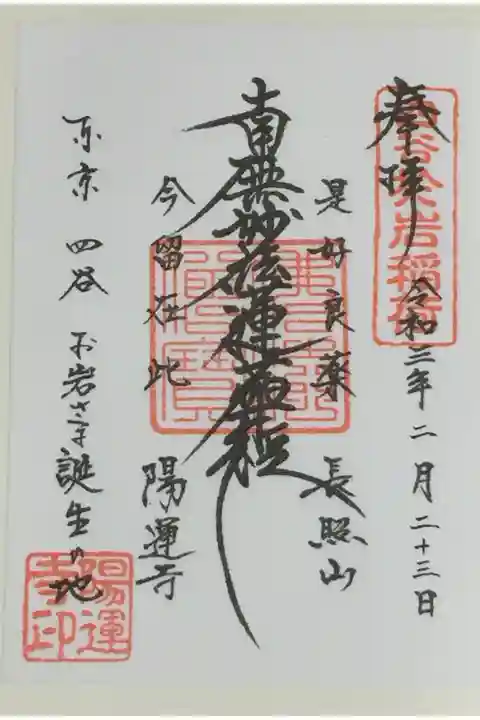 奉拝
令和三年二月二十三日
四谷於岩稲荷
是好良薬
長照山
南無妙法蓮華経
今留在此
陽運寺
東京 四谷 お岩さま誕生の地
陽運寺印